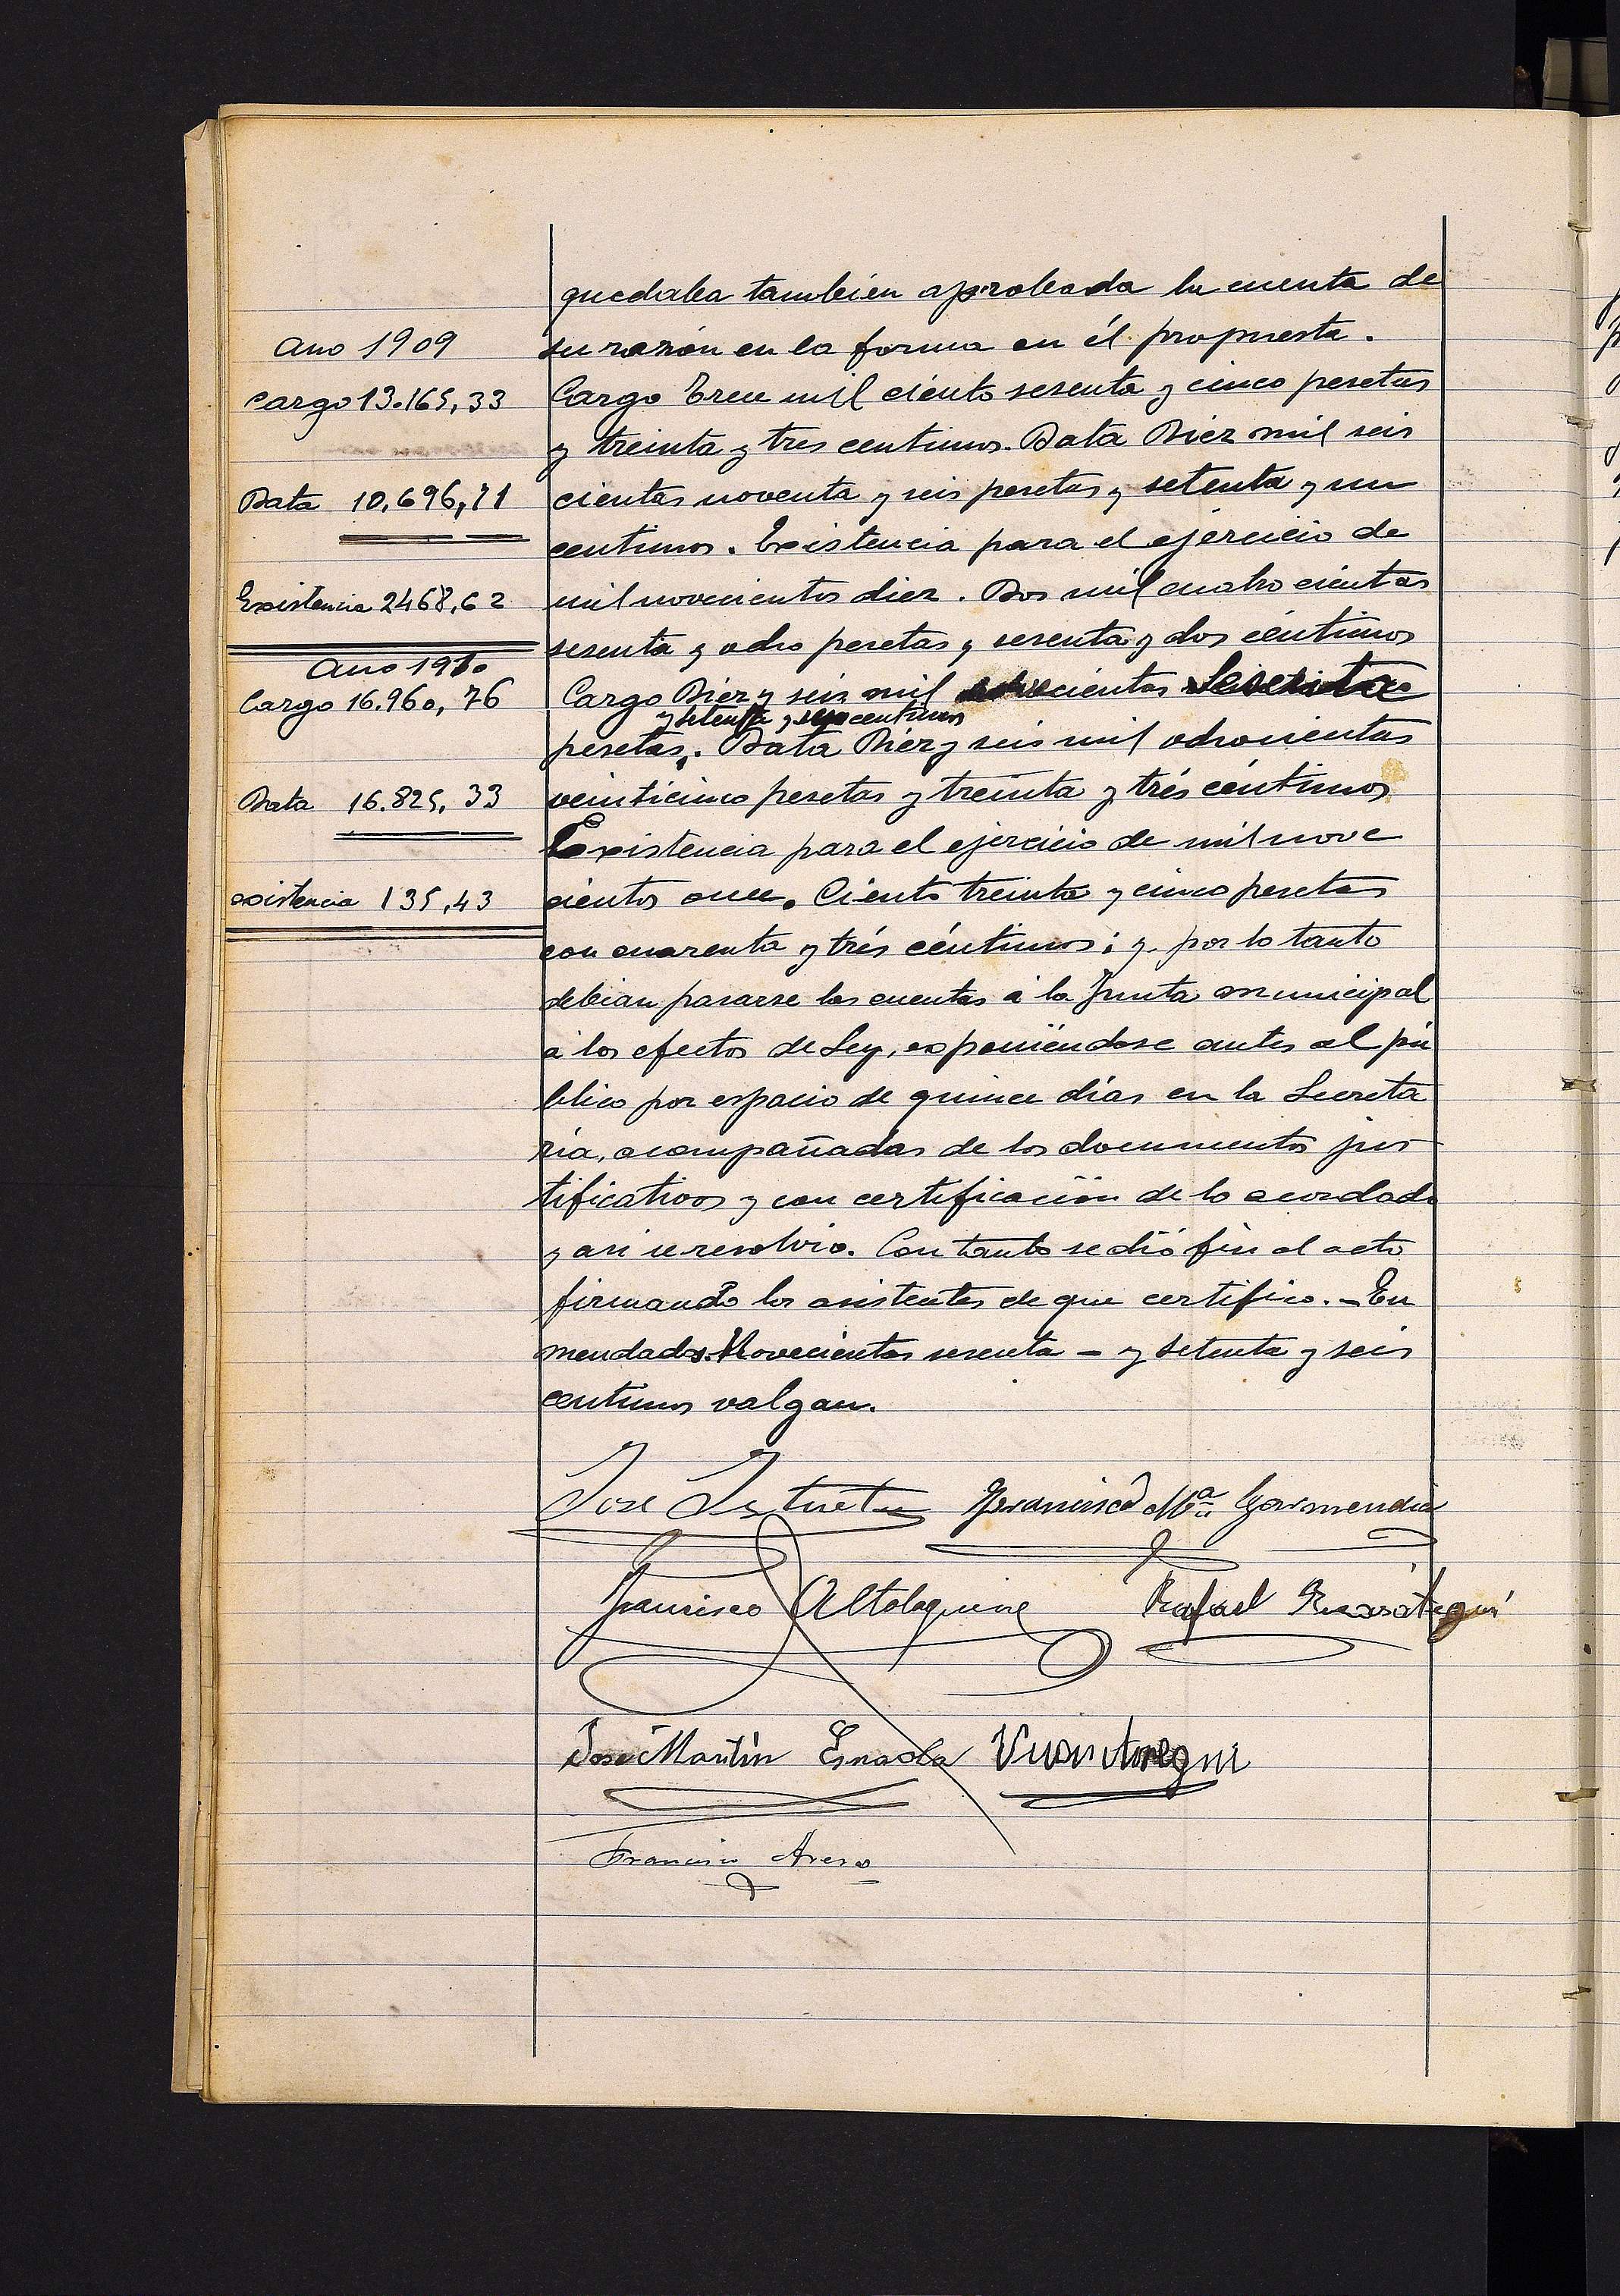 quedaba también aprobada la cuenta de
Año 1909
su razón en la forma en él propuesta.
Cargo 13.165,33
Cargo Trece mil ciento sesenta y cinco pesetas
y treinta y tres centimos. Data Diez mil seis
Data 10,696,71
cientas noventa y seis pesetas y setenta y un
centimos. Existencia para el ejercicio de
Existencia 2468,62
mil novecientos diez. Dos mil cuatro cientas
sesenta y ocho pesetas y sesenta y dos céntimos
Año 1910
Cargo 16.960,76
Cargo Diez y seis mil novecientas Sesenta
y setenta y seis centimos
pesetas. Data Diez y seis mil ochocientas
Data 16.825,33
veinticinco pesetas y treinta y trés céntimos
Existencia para el ejercicio de mil nove
existencia 135,43
cientos once. Ciento treinta y cinco pesetas
con cuarenta y trés céntimos; y por lo tanto
debian pasarse las cuentas á la Junta municipal
á los efectos de Ley, exponiéndose antes al pú
blico por espacio de quince días en la Secreta
ría, acompañadas de los documentos jus
tificativos y con certificación de lo acordado
y asi se resolvio. Con tanto se dió fin al acto
firmando los asistentes de que certifico. - En
mendado. Novecientas sesenta - y setenta y seis
centimos valgan.
José Francisco Mª Garmendia
Francisco Altolaguirre Rafael
José Martín Esnaola
Francisco